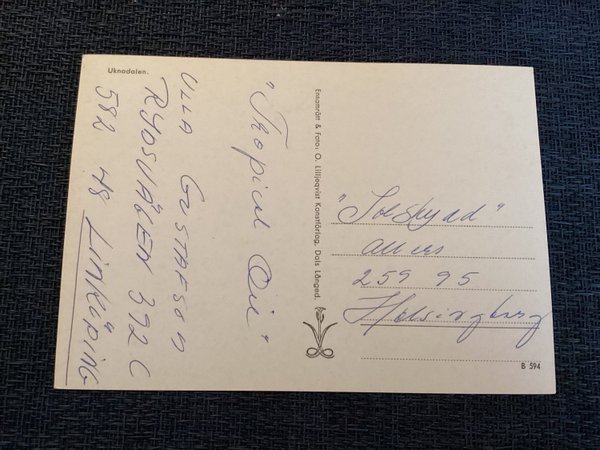 Uknadalen.
"Tropical Oil"
ULLA GUSTAFSON
RYDSVÄGEN 392 C
582 48 LINKÖPING
Ensamrätt & Foto: O. Lilljeqvist Konstförlag, Dals Långed.
"Solskydd"
Allers
259 95
Helsingborg
B 594